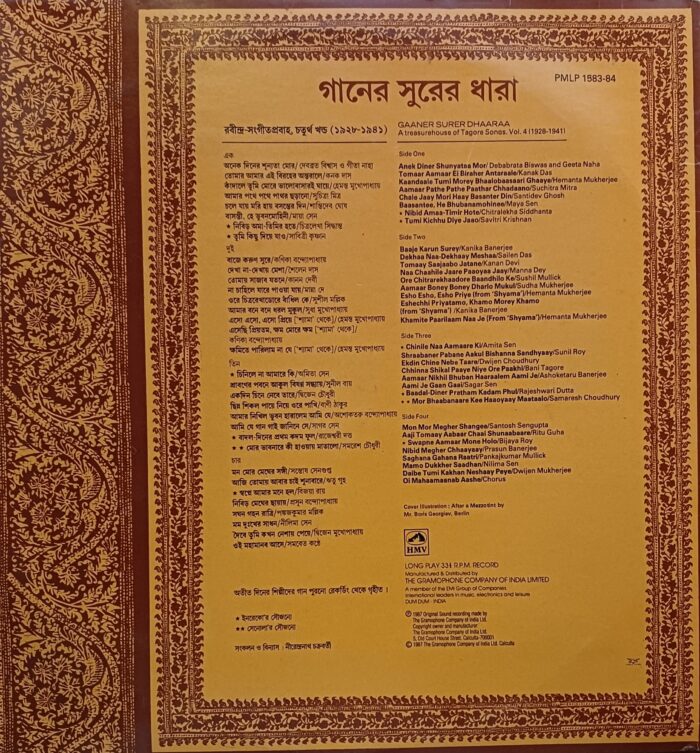 PMLP 1583-84
গানের সুরের ধারা
রবীন্দ্র-সংগীতপ্রবাহ, চতুর্থ খন্ড (১৯২৮-১৯৪১)
GAANER SURER DHAARAA
A treasurehouse of Tagore Songs. Vol. 4 (1928-1941)
এক
অনেক দিনের শূন্যতা মোর/ দেবব্রত বিশ্বাস ও গীতা নাহা
তোমার আমার এই বিরহের অন্তরালে/কনক দাস
কাঁদালে তুমি মোরে ভালোবাসারই ঘায়ে/হেমন্ত মুখোপাধ্যায়
আমার পথে পথে পাথর ছড়ানো/সুচিত্রা মিত্র
চলে যায় মরি হায় বসন্তের দিন/শান্তিদেব ঘোষ
বাসন্তী, হে ভুবনমোহিনী/মায়া সেন
* নিবিড় অমা-তিমির হতে/চিত্রলেখা সিদ্ধান্ত
* তুমি কিছু দিয়ে যাও/সাবিত্রী কৃষ্ণান
দুই
বাজে করুণ সুরে/কণিকা বন্দ্যোপাধ্যায়
দেখা না-দেখায় মেশা/শৈলেন দাস
তোমায় সাজাব যতনে/কানন দেবী
না চাহিলে যারে পাওয়া যায়/মান্না দে
ওরে চিত্ররেখাডোরে বাঁধিল কে/সুশীল মল্লিক
আমার বনে বনে ধরল মুকুল/সুধা মুখোপাধ্যায়
এসো এসো, এসো প্রিয়ে ['শ্যামা' থেকে]/হেমন্ত মুখোপাধ্যায়
এসেছি প্রিয়তম, ক্ষম মোরে ক্ষম ['শ্যামা' থেকে]/
কণিকা বন্দ্যোপাধ্যায়
ক্ষমিতে পারিলাম না যে ['শ্যামা' থেকে]/হেমন্ত মুখোপাধ্যায়
তিন
* চিনিলে না আমারে কি/অমিতা সেন
শ্রাবণের পবনে আকুল বিষণ্ণ সন্ধ্যায়/সুনীল রায়
একদিন চিনে নেবে তারে/দ্বিজেন চৌধুরী
ছিন্ন শিকল পায়ে নিয়ে ওরে পাখি/বাণী ঠাকুর
আমার নিখিল ভুবন হারালেম আমি যে/অশোকতরু বন্দ্যোপাধ্যায়
আমি যে গান গাই জানিনে সে/সাগর সেন
* বাদল-দিনের প্রথম কদম ফুল/রাজেশ্বরী দত্ত
* * মোর ভাবনারে কী হাওয়ায় মাতালো/সমরেশ চৌধুরী
চার
মন মোর মেঘের সঙ্গী/সন্তোষ সেনগুপ্ত
আজি তোমায় আবার চাই শুনাবারে/ঋতু গুহ
* স্বপ্নে আমার মনে হল/বিজয়া রায়
নিবিড় মেঘের ছায়ায়/প্রসূন বন্দ্যোপাধ্যায়
সঘন গহন রাত্রি/পঙ্কজকুমার মল্লিক
মম দুঃখের সাধন/নীলিমা সেন
দৈবে তুমি কখন নেশায় পেয়ে/দ্বিজেন মুখোপাধ্যায়
ওই মহামানব আসে/সমবেত কণ্ঠে
অতীত দিনের শিল্পীদের গান পুরনো রেকর্ডিং থেকে গৃহীত।
* ইনরেকো'র সৌজন্যে
** সেনোলা'র সৌজন্যে
সংকলন ও বিন্যাস : নীরেন্দ্রনাথ চক্রবর্তী
Side One
Anek Diner Shunyataa Mor/ Debabrata Biswas and Geeta Naha
Tomaar Aamaar Ei Biraher Antaraale/Kanak Das
Kaandaale Tumi Morey Bhaalobaasaari Ghaaye/Hemanta Mukherjee
Aamaar Pathe Pathe Paathar Chhadaano/Suchitra Mitra
Chale Jaay Mori Haay Basanter Din/Santidev Ghosh
Baasantee, He Bhubanamohinee/Maya Sen
* Nibid Amaa-Timir Hote/Chitralekha Siddhanta
* Tumi Kichhu Diye Jaao/Savitri Krishnan
Side Two
Baaje Karun Surey/Kanika Banerjee
Dekhaa Naa-Dekhaay Meshaa/Sailen Das
Tomaay Saajaabo Jatane/Kanan Devi
Naa Chaahile Jaare Paaoyaa Jaay/Manna Dey
Ore Chitrarekhaadore Baandhilo Ke/Sushil Mullick
Aamaar Boney Boney Dharlo Mukul/Sudha Mukherjee
Esho Esho, Esho Priye (from 'Shyama')/Hemanta Mukherjee
Eshechhi Priyatamo, Khamo Morey Khamo
(from 'Shyama') /Kanika Banerjee
Khamite Paarilaam Naa Je (From 'Shyama')/Hemanta Mukherjee
Side Three
* Chinile Naa Aamaare Ki/Amita Sen
Shraabaner Pabane Aakul Bishanna Sandhyaay/Sunil Roy
Ekdin Chine Nebe Taare/Dwijen Choudhury
Chhinna Shikal Paaye Niye Ore Paakhi/Bani Tagore
Aamaar Nikhil Bhuban Haaraalem Aami Je/Ashoketaru Banerjee
Aami Je Gaan Gaai/Sagar Sen
* Baadal-Diner Pratham Kadam Phul/Rajeshwari Dutta
* * Mor Bhaabanaare Kee Haaoyaay Maataalo/Samaresh Choudhury
Side Four
Mon Mor Megher Shangee/Santosh Sengupta
Aaji Tomaay Aabaar Chaai Shunaabaare/Ritu Guha
* Swapne Aamaar Mone Holo/Bijaya Roy
Nibid Megher Chhaayaay/Prasun Banerjee
Saghana Gahana Raatri/Pankajkumar Mullick
Mamo Dukkher Saadhan/Nilima Sen
Daibe Tumi Kakhan Neshaay Peye/Dwijen Mukherjee
Oi Mahaamaanab Aashe/Chorus
Cover Illustration : After a Mezzotint by
Mr. Boris Georgiev, Berlin
HMV
LONG PLAY 33⅓ R.P.M. RECORD
Manufactured & Distributed by
THE GRAMOPHONE COMPANY OF INDIA LIMITED
A member of the EMI Group of Companies.
International leaders in music, electronics and leisure
DUM DUM · INDIA
℗ 1987 Original Sound recording made by
The Gramophone Company of India Ltd.
Copyright owner and manufacturer
The Gramophone Company of India Ltd.
5, Old Court House Street, Calcutta-700001
© 1987 The Gramophone Company of India Ltd. Calcutta